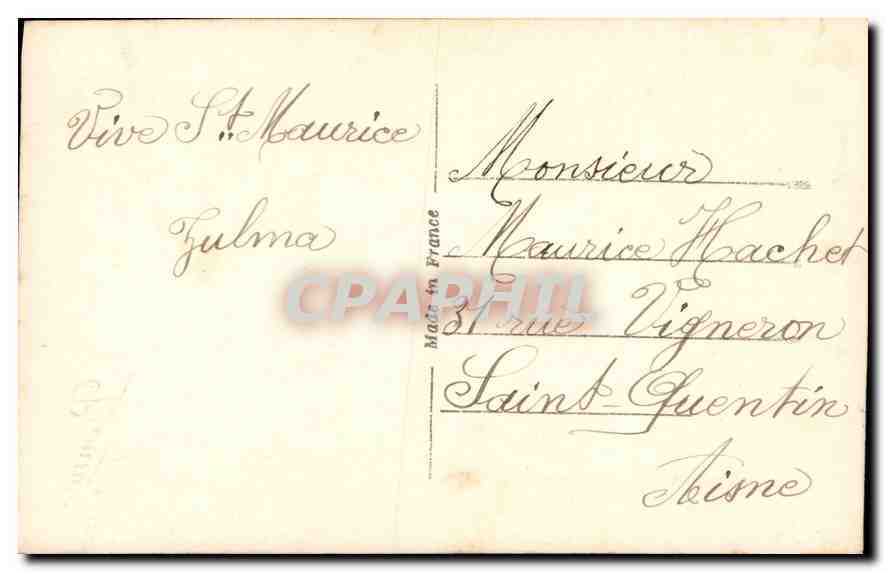 Vive St. Maurice
Zulma
Made in France
Monsieur
Maurice Hachet
31 rue Vigneron
Saint-Quentin
Aisne
CPAPHIL